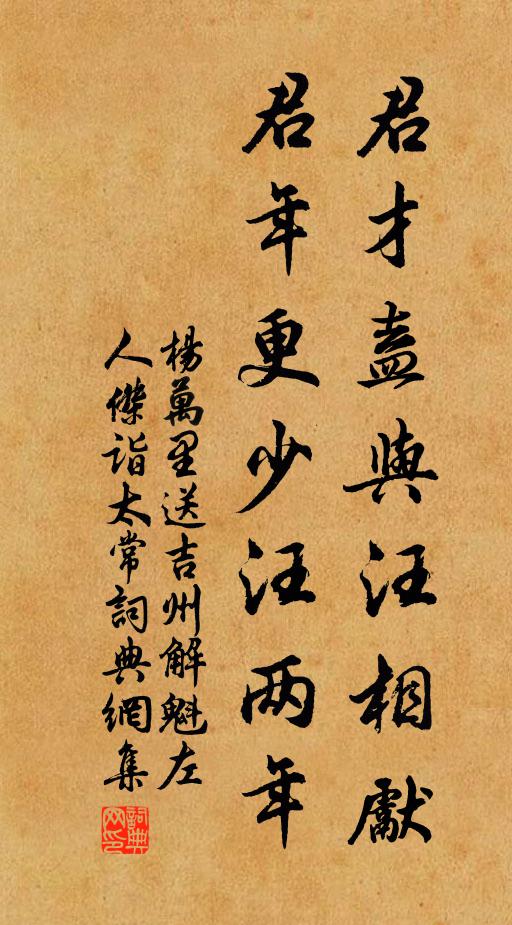 君才盍與汪相獻
君年更少汪两年
楊萬里送吉州解魁左
人傑詣太常詞典網集
詞典
网印